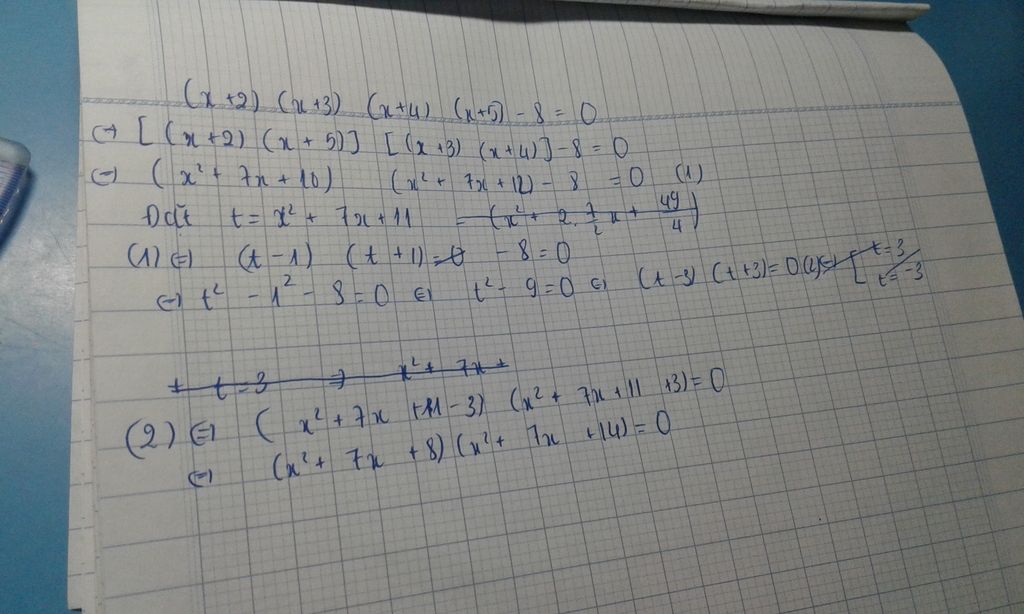 (x+2) (x+3) (x+4) (x+5) - 8 = 0
⇔ [(x+2) (x+5)] [(x+3) (x+4)] - 8 = 0
⇔ (x² + 7x + 10) (x² + 7x + 12) - 8 = 0 (1)
Đặt t = x² + 7x + 11 = (x² + 2. 7/2 x + 49/4)
(1) ⇔ (t - 1) (t + 1) = 0 - 8 = 0
⇔ t² - 1² - 8 = 0 ⇔ t² - 9 = 0 ⇔ (t - 3) (t + 3) = 0 (2) ⇔ [ t = 3
t = -3
+ t = 3 ⇒ x² + 7x +
(2) ⇔ (x² + 7x + 11 - 3) (x² + 7x + 11 + 3) = 0
⇔ (x² + 7x + 8) (x² + 7x + 14) = 0